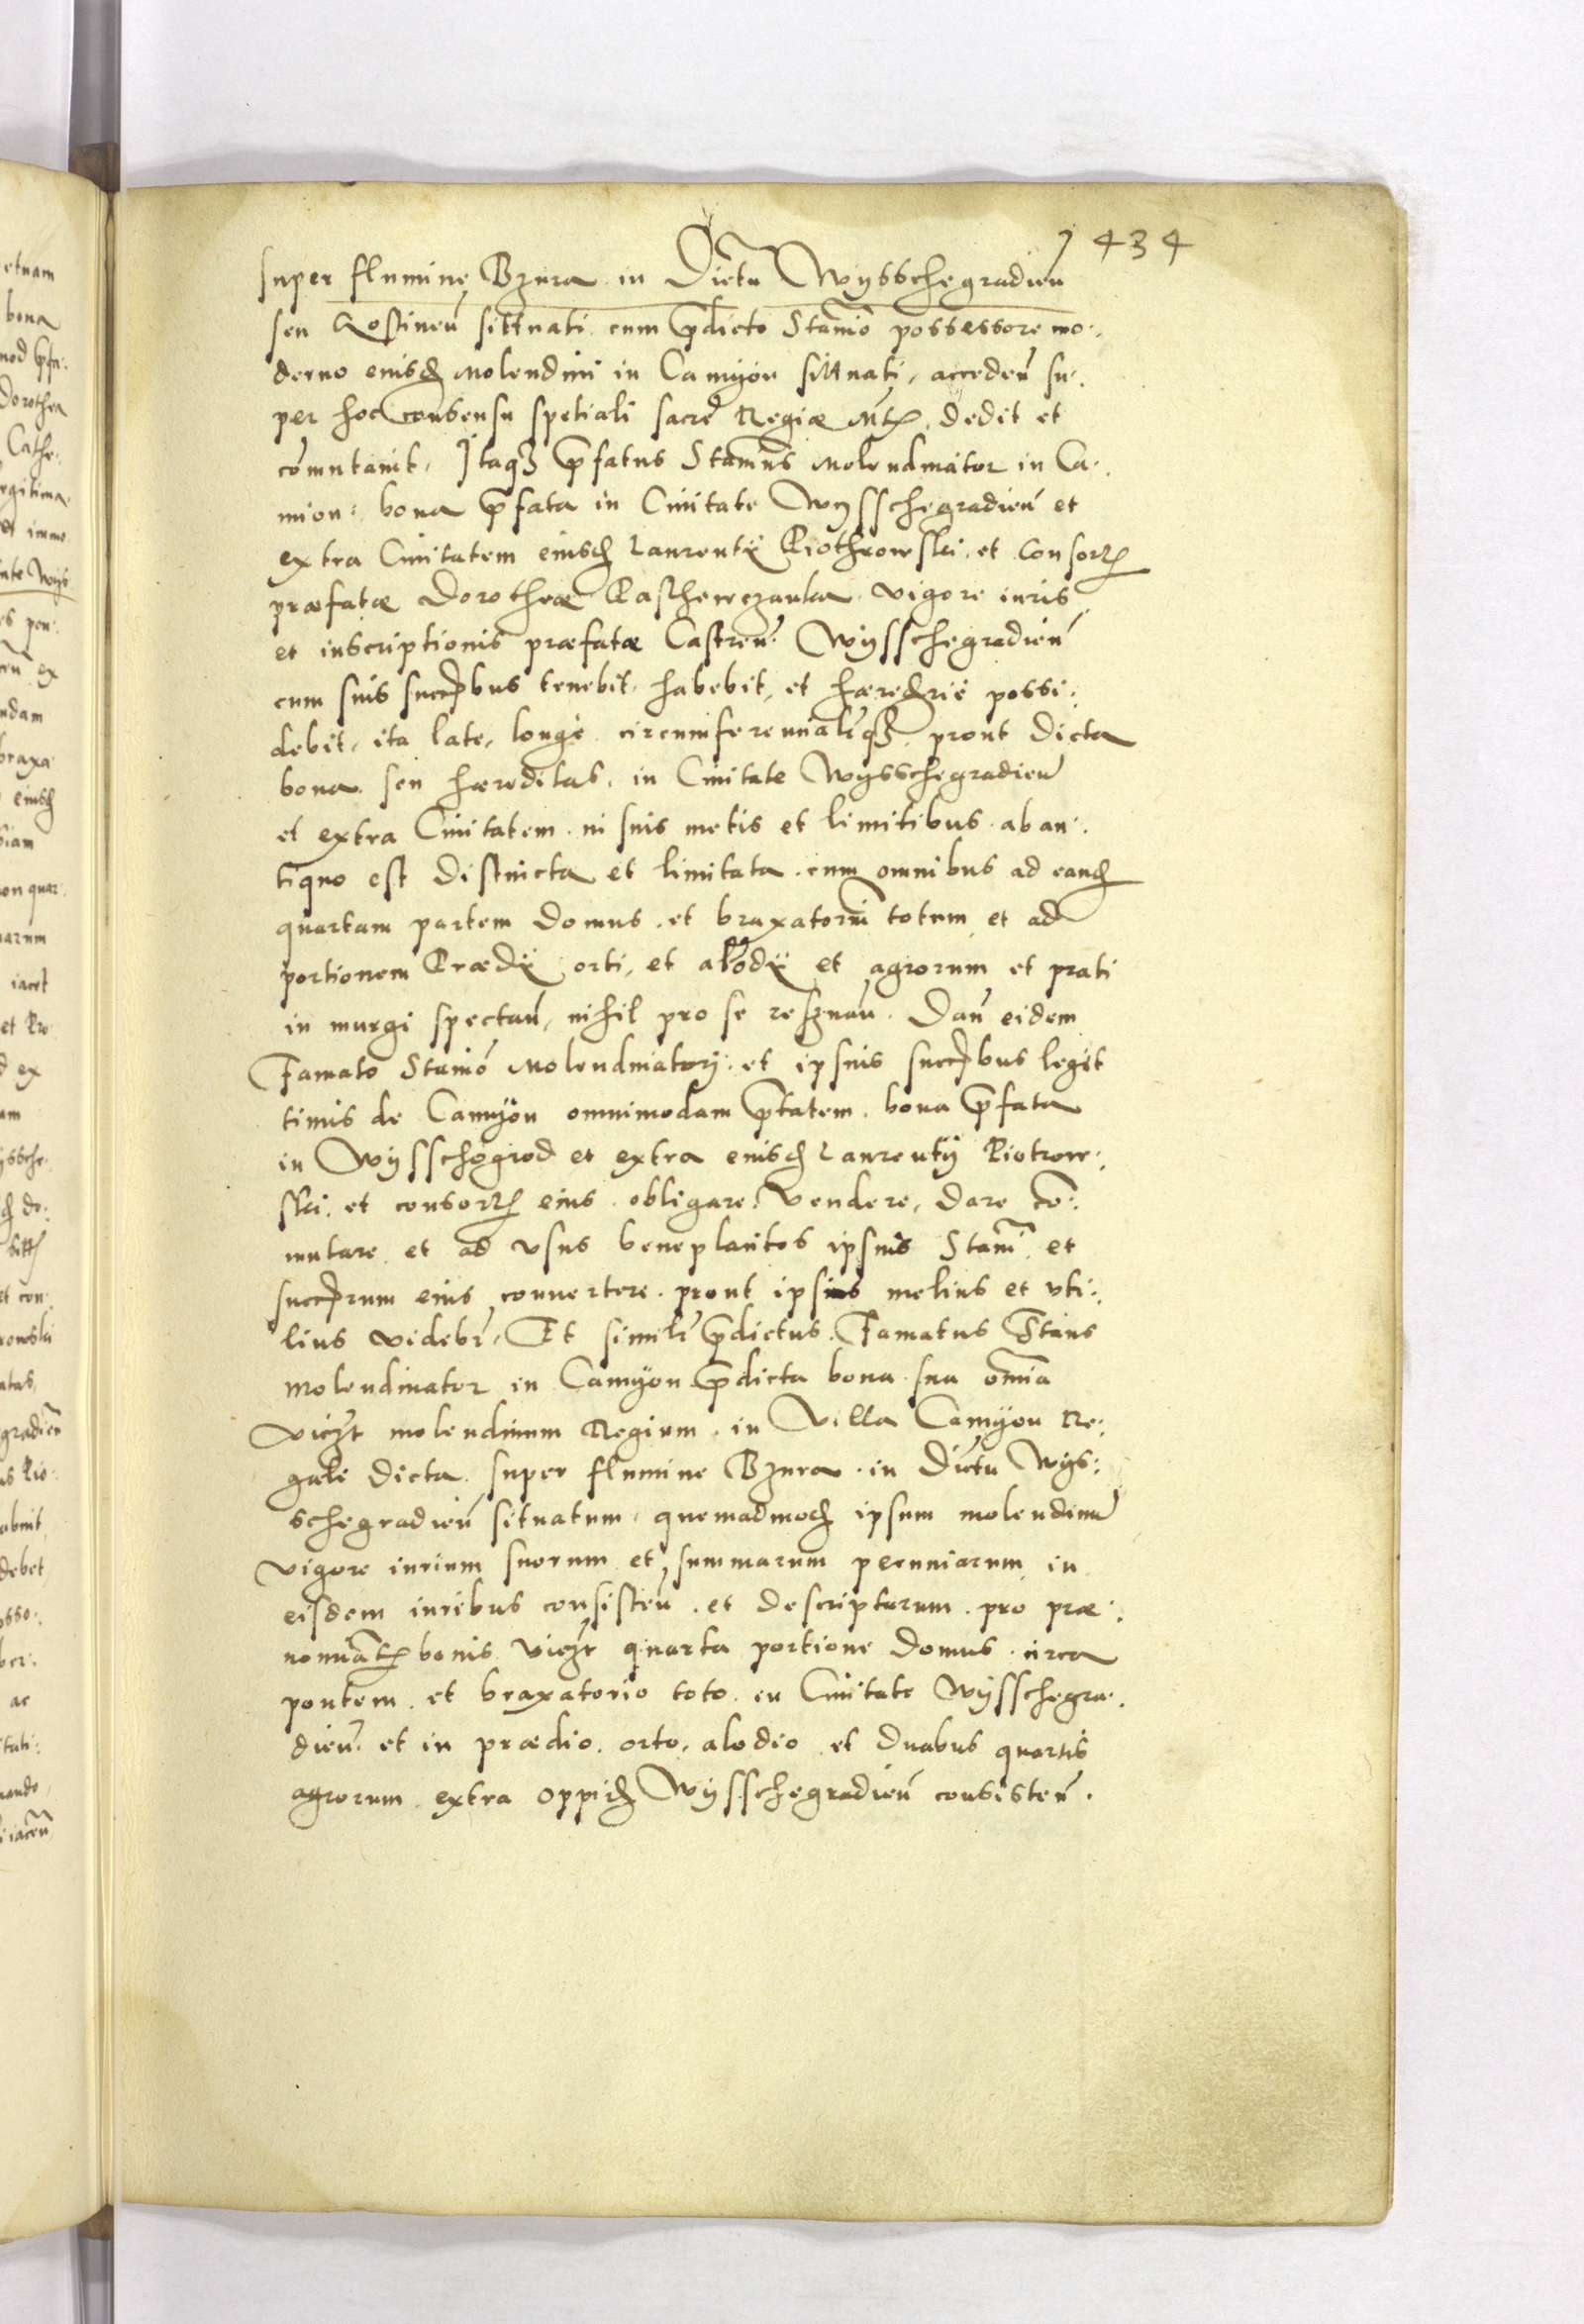 434
super flumine Bzura in Dictu Wyssschegradien
seu Gostinen sittuati cum pdicto Stanio possessore mo:
derno eiusd molendini in Camyon sittuati, acceden su:
per hoc consensu spetiali sacre Regiæ Mtis, dedit et
comutauit, Itaqz pfatus Stanius molendinator in Ca:
mion: bona pfata in Ciuitate Wysschegradien et
extra Ciuitatem eiusd Laurentÿ Piothrowski, et consortis
præfatæ Dorotheæ Pascherczanka vigore iuris
et inscriptionis præfatæ Castren: Wysschegradien
cum suis succribus tenebit, habebit, et hæredrie possi:
debit, ita late, longe circumferenrialrqz prout dicta
bona seu hæreditas, in Ciuitate Wysschegradien
et extra Ciuitatem in suis metis et limitibus ab an:
tiquo est distincta et limitata cum omnibus ad eand
quartam partem domus et braxatorium totum et ad
portionem Prædÿ orti, et alodÿ et agrorum et prati
in murgi spectan, nihil pro se resznan. Dan eidem
Famato Stanio molendinatorj: et ipsius succribus legit
timis de Camyon omnimodam ptatem, bona pfata
in Wysschogrod et extra eiusd Laurentÿ Piotrow:
ski et consortis eius obligare, vendere, dare co:
mutare et ad vsus beneplacitos ipsius Stani et
succrum eius conuertere prout ipsius melius et vti:
lius videbr, Et similr pdictus Famatus Stans
molendinator in Camyon pdicta bona sua omnia
viczt molendinum Regium in Villa Camyon Re:
gali dicta super flumine Bzura in Dictu Wys:
schegradien situatum, quemadmod ipsum molendinu
vigore iurium suorum et summarum pecuniarum in
eisdem iuribus consisten et descriptarum pro præ:
nominatis bonis viczt quarta portione domus circa
pontem et braxatorio toto in Ciuitate Wysschegra:
dien: et in prædio orto, alodio et duabus quartis
agrorum extra oppid Wysschegradien consisten.